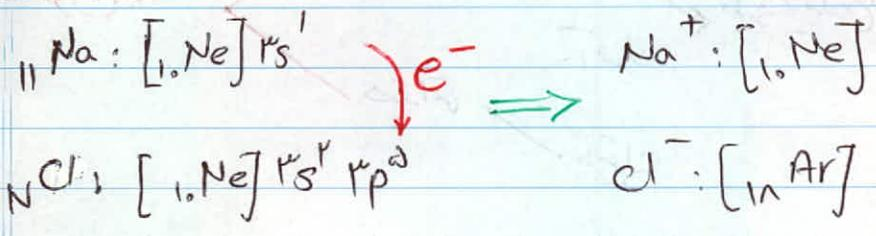 ₁₁Na : [₁.Ne] ۳s¹ e⁻ ⟹ Na⁺ : [₁.Ne]
₁۷Cl : [₁.Ne] ۳s² ۳p⁵ Cl⁻ : [₁₈Ar]